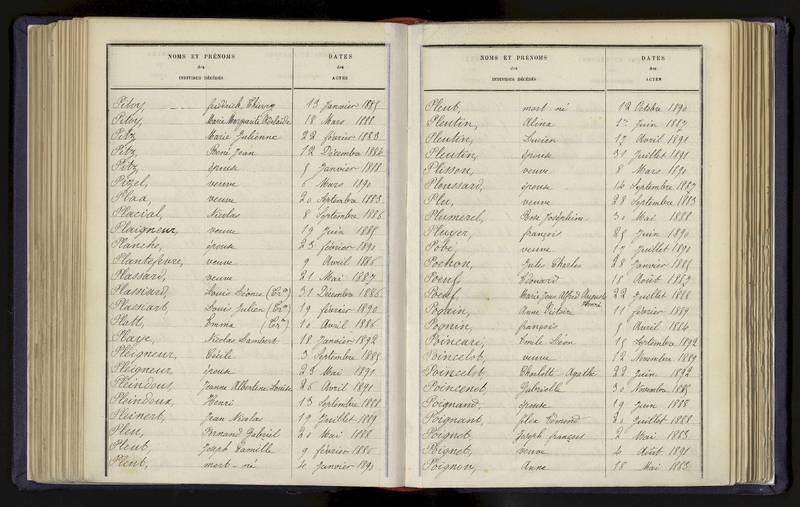 NOMS ET PRÉNOMS
des
INDIVIDUS DÉCÉDÉS
DATES
des
ACTES
Pitoy, Frédérick Thierry 13 Janvier 1885
Pitoy, Marie Marguerite Adélaïde 18 Mars 1888
Pitz, Marie Julienne 22 février 1883
Pitz, René Jean 12 Décembre 1886
Pitz, épouse 5 Janvier 1888
Pizel, veuve 6 Mars 1890
Plaa, veuve 20 Septembre 1883
Placial, Nicolas 8 Septembre 1886
Plaigneur, veuve 19 Juin 1885
Planche, épouse 23 février 1890
Plantefeuve, veuve 9 Avril 1886
Plassard, veuve 21 Mai 1887
Plassiard, Louis Léonce 31 Décembre 1886
Plassiart, Louis Julien 19 février 1890
Platt, Emma 10 Avril 1886
Playe, Nicolas Lambert 18 Janvier 1892
Pleigneur, Cécile 3 Septembre 1885
Pleigneur épouse 23 Mai 1890
Pleindoux, Jeanne Albertine Louise 26 Avril 1891
Pleindoux, Henri 13 Septembre 1888
Pleinert, Jean Nicolas 19 Juillet 1889
Pleu, Fernand Gabriel 20 Mai 1888
Pleut, Joseph Camille 9 février 1886
Pleut, mort-né 4 Janvier 1890
NOMS ET PRÉNOMS
des
INDIVIDUS DÉCÉDÉS
DATES
des
ACTES
Pleut, mort-né 12 Octobre 1890
Pleutin, Alina 1er Juin 1887
Pleutin, Lucien 17 Avril 1891
Pleutin, épouse 31 Juillet 1891
Plisson, veuve 8 Mars 1890
Ploussard, épouse 14 Septembre 1887
Plu, veuve 28 Septembre 1883
Plumerel, Rose Joséphine 30 Mai 1888
Pluyer, françois 25 Juin 1890
Pobé, veuve 17 Juillet 1890
Pochon, Jules Charles 28 Janvier 1885
Poeuf, Edouard 15 Août 1887
Poeuf, Marie Jean Alfred Auguste Henri 22 Juillet 1888
Pognin, Anne Victoire 11 février 1889
Pognin, françois 8 Avril 1886
Poincaré, Emile Léon 15 Septembre 1892
Poincelot, veuve 12 Novembre 1889
Poincelot, Charlotte Agathe 22 Juin 1892
Poincenot, Gabrielle 30 Novembre 1885
Poignand, épouse 19 Juin 1888
Poignant, félix Edmond 20 Juillet 1888
Poignot, Joseph françois 2 Mai 1883
Poignet, veuve 4 Août 1891
Poignon, Anne 18 Mai 1883